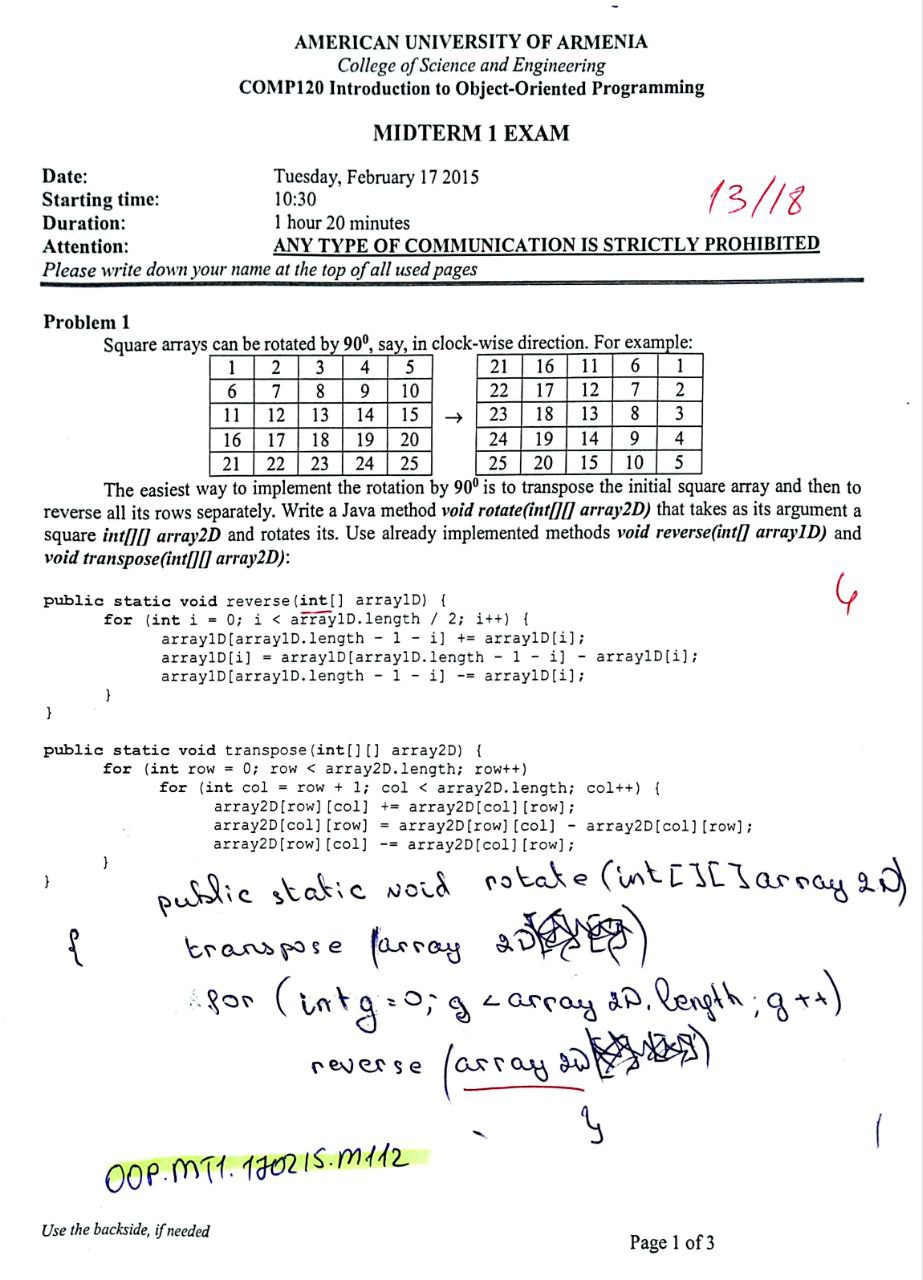 AMERICAN UNIVERSITY OF ARMENIA
College of Science and Engineering
COMP120 Introduction to Object-Oriented Programming
MIDTERM 1 EXAM
Date: Tuesday, February 17 2015
Starting time: 10:30
Duration: 1 hour 20 minutes
Attention: ANY TYPE OF COMMUNICATION IS STRICTLY PROHIBITED
Please write down your name at the top of all used pages
13/18
Problem 1
Square arrays can be rotated by 90⁰, say, in clock-wise direction. For example:
1 2 3 4 5 21 16 11 6 1
6 7 8 9 10 22 17 12 7 2
11 12 13 14 15 → 23 18 13 8 3
16 17 18 19 20 24 19 14 9 4
21 22 23 24 25 25 20 15 10 5
The easiest way to implement the rotation by 90⁰ is to transpose the initial square array and then to
reverse all its rows separately. Write a Java method void rotate(int[][] array2D) that takes as its argument a
square int[][] array2D and rotates its. Use already implemented methods void reverse(int[] array1D) and
void transpose(int[][] array2D):
public static void reverse(int[] array1D) {
for (int i = 0; i < array1D.length / 2; i++) {
array1D[array1D.length - 1 - i] += array1D[i];
array1D[i] = array1D[array1D.length - 1 - i] - array1D[i];
array1D[array1D.length - 1 - i] -= array1D[i];
}
}
public static void transpose(int[][] array2D) {
for (int row = 0; row < array2D.length; row++)
for (int col = row + 1; col < array2D.length; col++) {
array2D[row][col] += array2D[col][row];
array2D[col][row] = array2D[row][col] - array2D[col][row];
array2D[row][col] -= array2D[col][row];
}
}
public static void rotate (int[][] array 2D)
{ transpose (array 2D)
for (int g = 0; g < array 2D. length; g ++)
reverse (array 2D)
}
OOP.MT1.170215.M112
Use the backside, if needed
Page 1 of 3